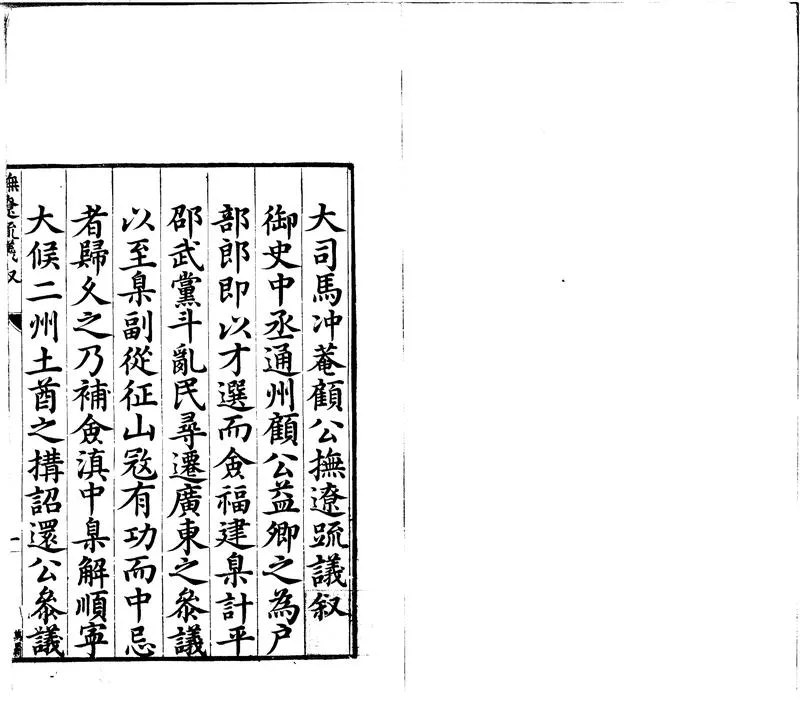 大司馬冲菴顧公撫遼䟽議叙
御史中丞通州顧公益卿之為戶
部郎即以才選而僉福建臬計平
邵武黨斗亂民尋遷廣東之叅議
以至臬副從征山㓂有功而中忌
者歸久之乃補僉滇中臬解順寧
大候二州土酋之搆詔還公叅議
撫遼䟽議叙
一